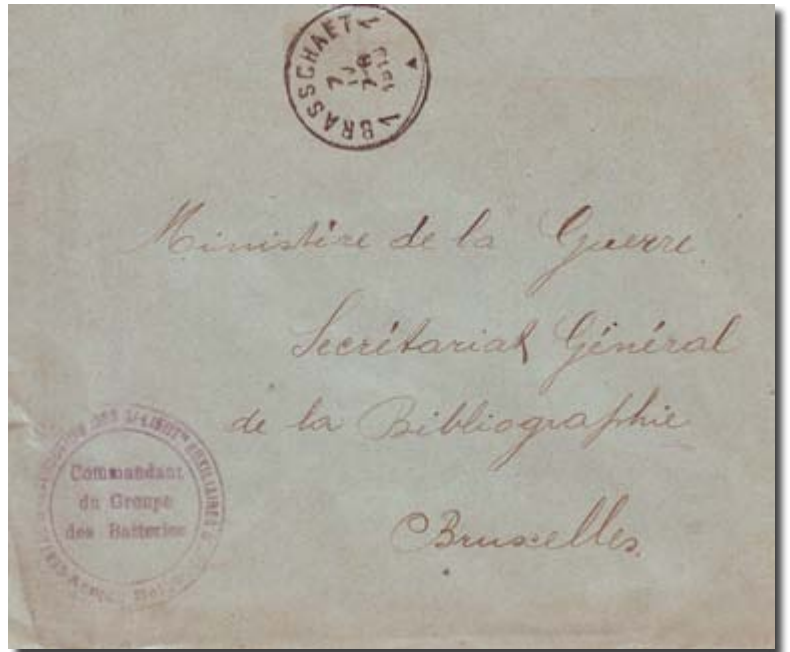 1 BRASSCHAET 1
Ministère de la Guerre
Secrétariat Général
de la Bibliographie
Bruxelles
Commandant
du Groupe
des Batteries
AUXILIAIRES